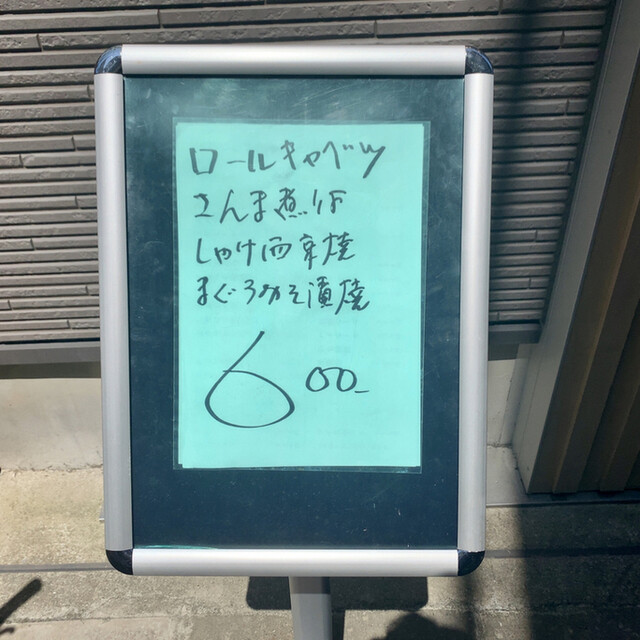 ロールキャベツ
さんま煮付
しゃけ西京焼
まぐろみそ漬焼
600-